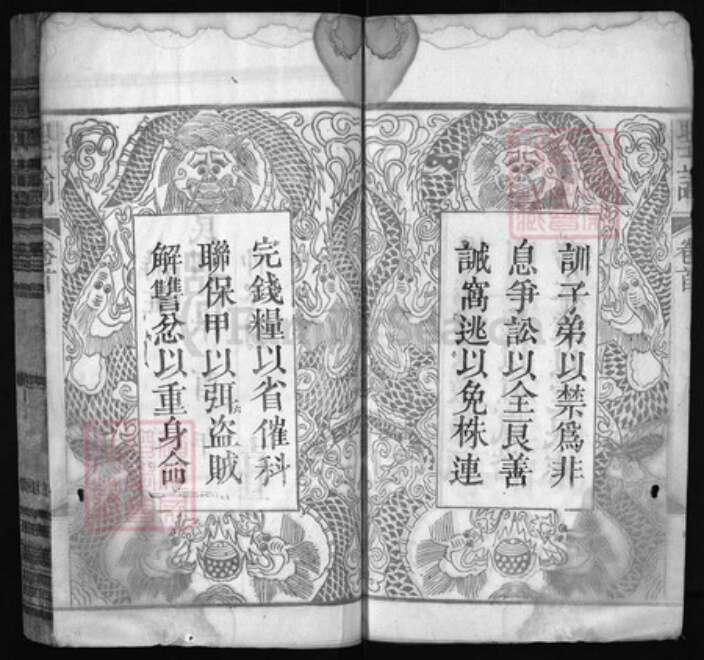 訓子弟以禁為非
息爭訟以全良善
誡窩逃以免株連
完錢糧以省催科
聯保甲以弭盜賊
解讐忿以重身命
聖諭
卷首
聖諭
卷首